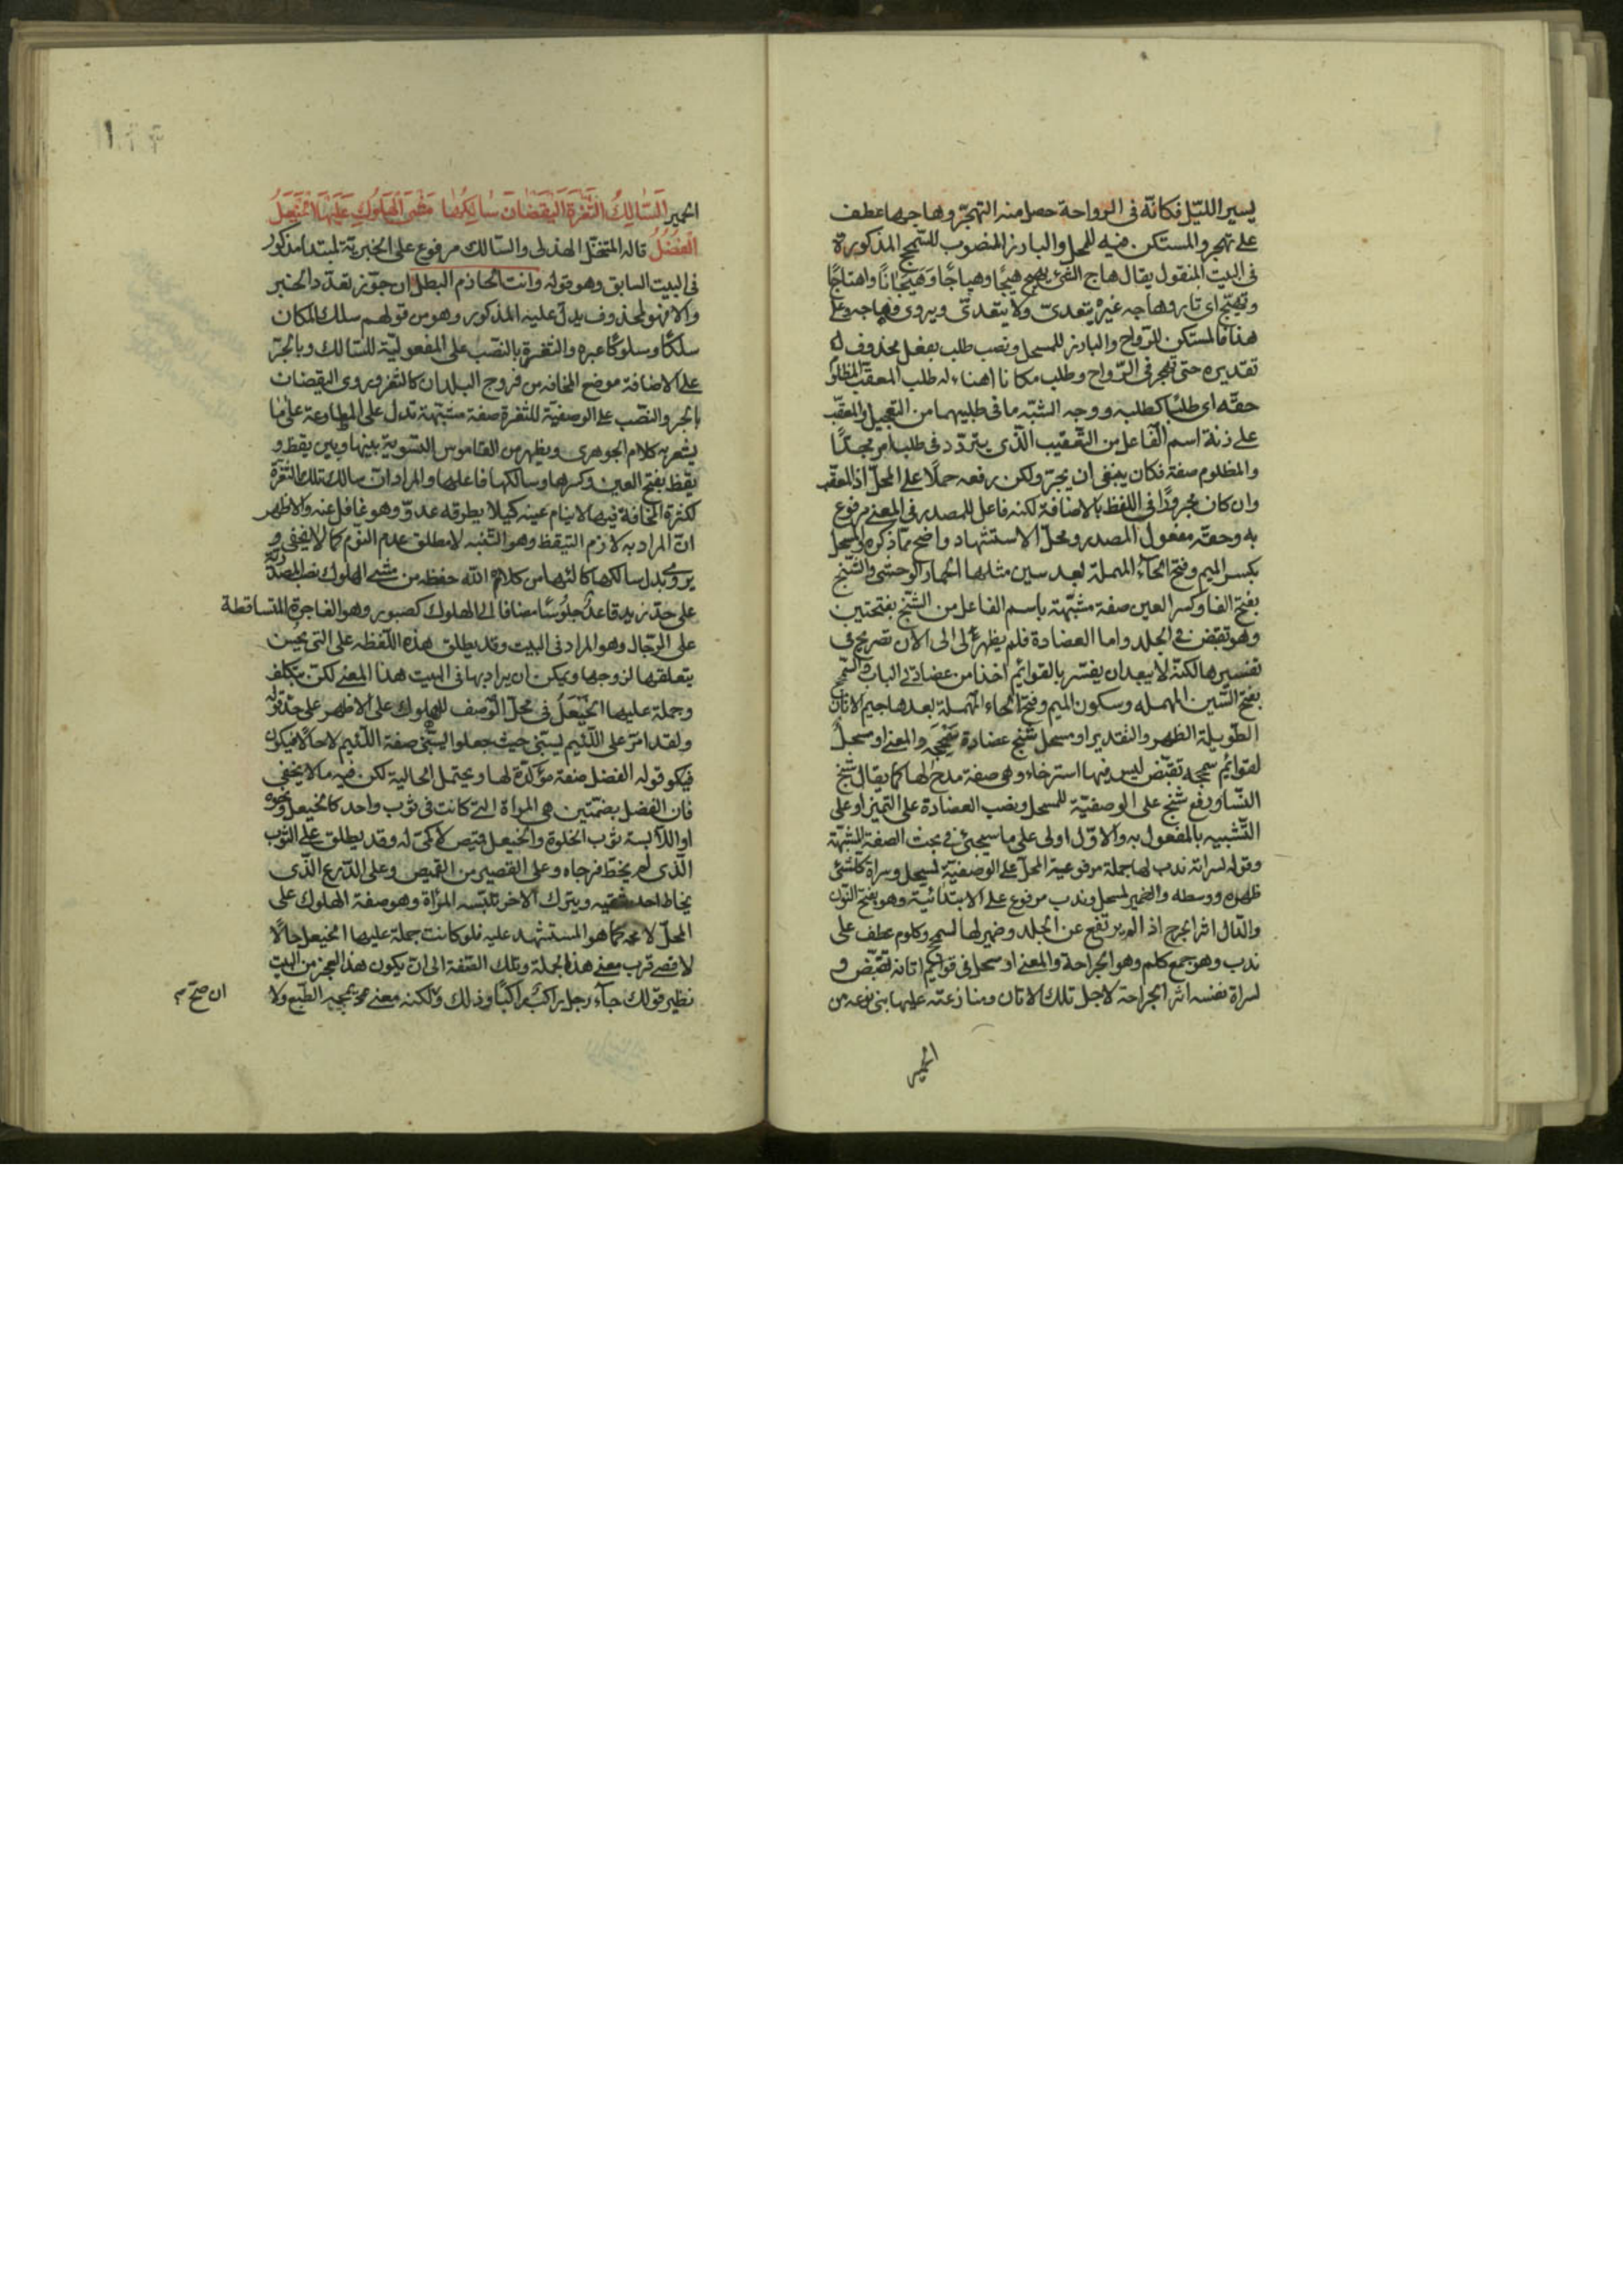 يسير الليل فكانّه فى الرواحة حصل منه التهجّر وهاجها عطف
على تهجر والمستكن فيه للمحل والبارز المنصوب للسمج المذكورة
فى البيت المنقول يقال هاج الشئ يهيج هيجًا وهياجًا وهَيَجَانًا واهتاجًا
وتهيّج اى ثار وهاجه غيره يتعدىّ ولا يتعدىّ ويروى وهاجه وعلى
هذا فالمستكن للرّواح والبارز للمسحل ونصب طلب بفعل محذوف
تقديره حتى تهجر فى الرّواح وطلب مكانا اهناء له طلب المعقّب المظلوم
حقّه اى طلبًا كطلبه ووجه الشبّه ما فى طلبيهما من التعجيل والمعقّب
على زنة اسم الفاعل من التّعقيب الّذى يتردّد فى طلب امر مجدًّا
والمظلوم صفة فكان ينبغى ان يجرّ ولكن رفعه حملًا على المحلّ اذ المعقّب
وان كان مجرورًا فى اللفظ بالاضافة لكنه فاعل للمصدر فى المعنى مرفوع
به وحقّه مفعول المصدر ومحلّ الاستشهاد واضح ممّا ذكره والمسحل
بكسر الميم وفتح الحآء المهملة بعد سين مثلها الحمار الوحشى والشّنج
بفتح الفا وكسر العين صفة مشبّهة باسم الفاعل من الشّنج بفتحتين
وهو تقبّض فى الجلد واما العضادة فلم يظهر لى الى الآن تصريح فى
تفسيرها لكنّه لا يبعد ان يفسّر بالقوائم اخذا من عضادتى الباب والسّمحج
بفتح السّين المهمله وسكون الميم وفتح الحاء المهملة بعدها جيم الاتان
الطّويلة الظهر والتقدير او مسحل شنج عضادة سمحجه والمعنى او مسحل
لقوائم سمحجه تقبّض ليس فيها استرخاء وهى صفة مدح لها كما يقال شنج
النّسا ورفع شنج على الوصفيّة للمسحل ونصب العضادة على التميز او على
التّشبيه بالمفعول به والاوّل اولى على ما سيجئ فى بحث الصفة المشبّهة
وقوله لسراته ندب لها جملة مرفوعية المحلّ على الوصفيّة لمسحل وسراة كلشئ
ظهره ووسطه والضمير لمسحل وندب مرفوع على الابتدائية وهو بفتح النون
والدّال اثر الجرح اذا لم يرتفع عن الجلد وضمير لها لسمحج وكلوم عطف على
ندب وهو جمع كلم وهو الجراحة والمعنى او مسحل فى قوائم اتانه تقبّض و
لسراة نفسه اثر الجراحة لاجل تلك الاتان ومنازعته عليها بنى نوعه من
الحمير
الحمير السَّالِكُ الثُّغْرَةَ اليَقْضَانَ سَالِكُهَا مَشْىَ الْهَلُوكِ عَلَيْهَا الخَيْعَلُ
الفُضُلُ قاله المتنخّل الهذلى والسّالك مرفوع على الخبريّة لمبتدا مذكور
فى البيت السابق وهو قوله وانت الحازم البطل ان جوّز تعدّد الخبر
والا فهو لمحذوف يدلّ عليه المذكور وهو من قولهم سلك المكان
سلكًا وسلوكًا عبره والثغرة بالنّصب على المفعوليّة للسّالك وبالجرّ
على الاضافة موضع المخافه من فروج البلدان كالثغر ويروى اليقضات
بالجر والنصّب على الوصفيّة للثغرة صفة مشبّهة تدلّ على المطاوعة على ما
يشعر به كلام الجوهرى ويظهر من القاموس التسوية بينها وبين يقظ و
يقظ بفتح العين وكسرها وسالكها فاعلها والمراد انّ سالك تلك الثّغرة
لكثرة المخافة فيها لا ينام عينه كيلا يطرقه عدوّ وهو غافل عنه والاظهر
انّ المراد به لازم التيقظ وهو التّنبه لا مطلق عدم النّوم كما لا يخفى و
يروى بدل سالكها كالئها من كلأه اللّه حفظه من مشى الهلوك نصب المصدريّة
على حدّ زيد قاعدٌ جلوسًا مضافا الى الهلوك كصبور وهو الفاجرة المتساقطة
على الرّجال وهو المراد فى البيت وقد يطلق هذه اللّفظه على التى يحسن
تعلقها لزوجها ويمكن ان يراد بها فى البيت هذا المعنى لكن بتكلف
وجملة عليها الخَيْعَلُ فى محلّ الوّصف للهلوك على الاظهر على حدّ قوله
ولقد امرّ على اللّئيم يسبّنى حيث جعلوا يسبّنى صفة اللّئيم لا حالًا فيكون
فيكو قوله الفضل صفة مؤكدّة لها ويحتمل الحالية لكن فيه ما لا يخفى
فان الفضل بضمّتين هى المرأة الّتى كانت فى ثوب واحد كالخيعل ونحوه
او اللّابسة ثوب الخلوة والخيعل قميص لا كمّى له وقد يطلق على الثوب
الّذى لم يخط فرجاه وعلى القصير من القميص وعلى الدّرع الّذى
يخاط احد شقيه ويترك الآخر تلبّسه المرأة وهو صفة الهلوك على
المحلّ لا محه كما هو المستشهد عليه فلو كانت جملة عليها الخيعل حالًا
لاقصى قرب معنى هذه الجملة وتلك الصّفة الى ان يكون هذا العجز من البيت
نظير قولك جآء رجل راكبٌ راكبًا وذلك ولكنه معنى محه يمجّه الطّبع ولا
ان صحّ م